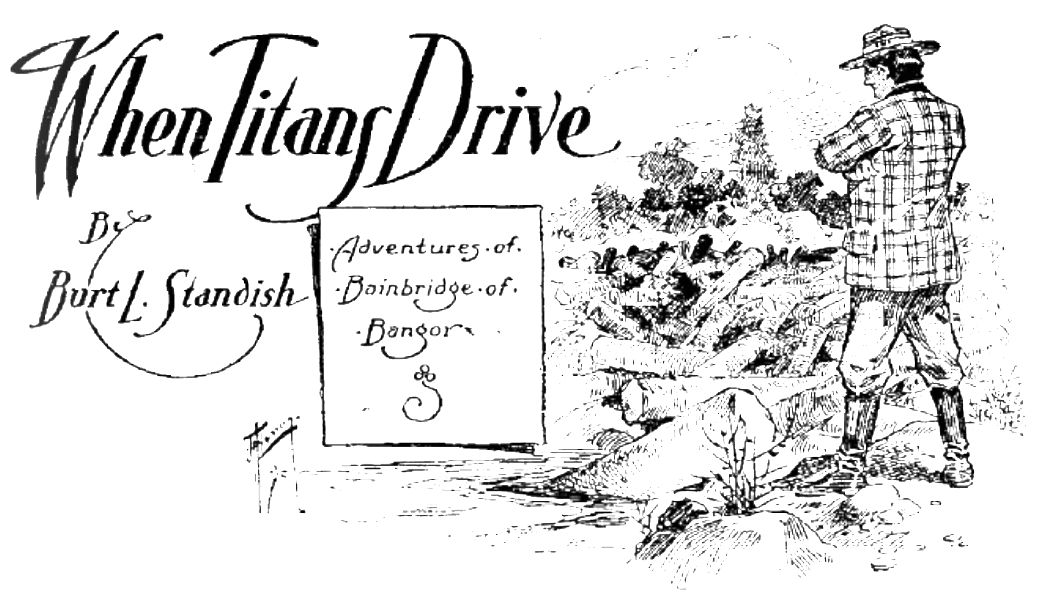 When Titans Drive
By
Burt L. Standish
·Adventures·of·
·Bainbridge·of·
·Bangor·